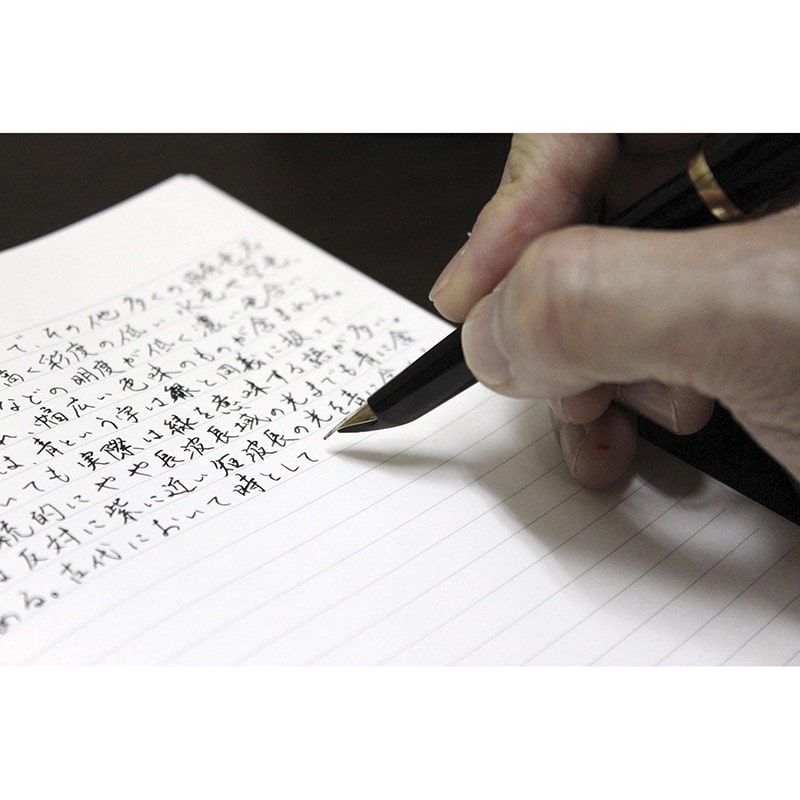 で、その他多くの
高く彩度の低い水色や空色、
などの明度が低く濃い色合い
、幅広い色味のものが含まれる。
は、青という字は緑と同義に扱って
いても実際は緑を意味する語が多い。
統的にやや長波長域の光までも青に含
反対に紫に近い短波長の光を青に含
める。古代において時として